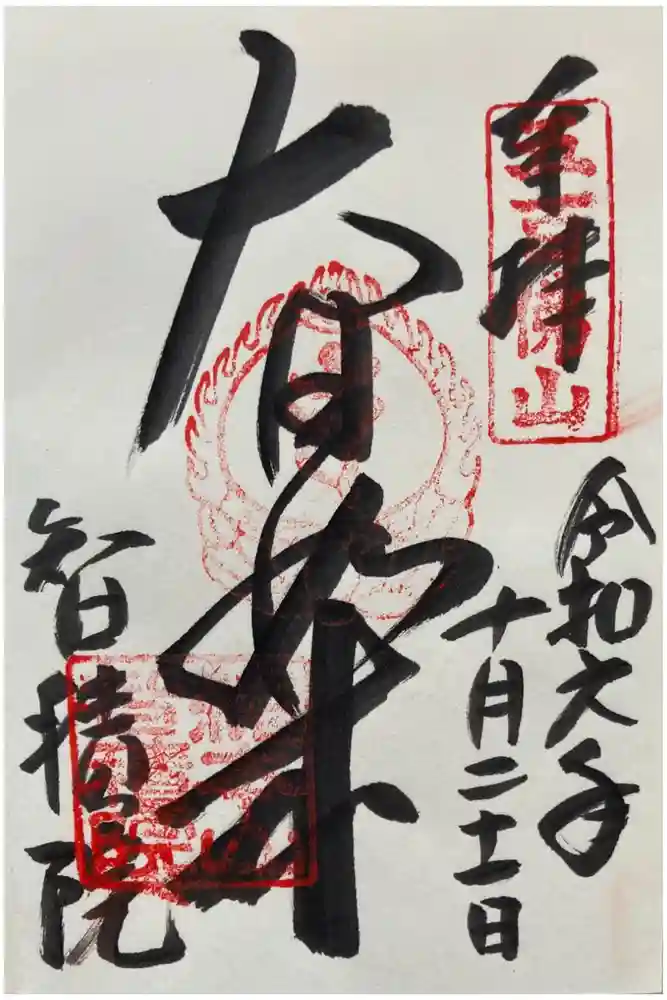 奉拝
令和六年
十月二十一日
大日如来
智積院